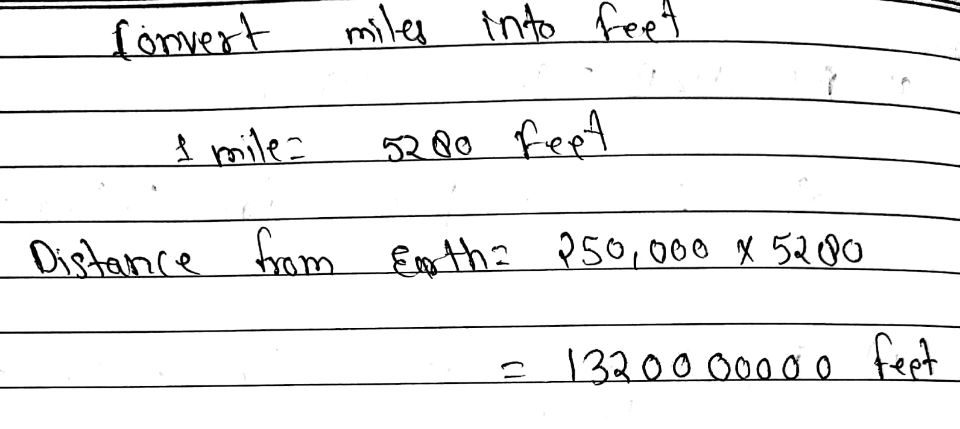 Convert miles into feet
1 mile = 5280 feet
Distance from Earth = 250,000 x 5280
= 1320000000 feet